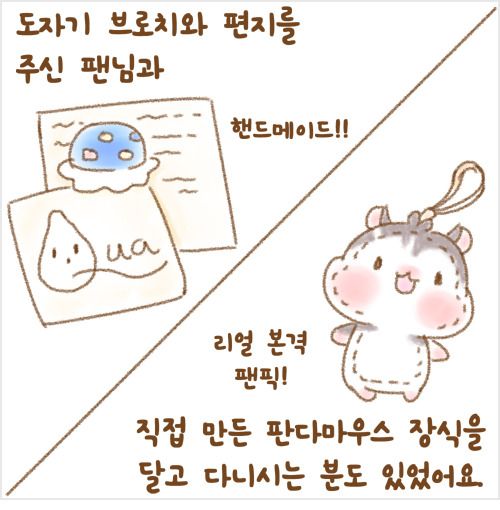 도자기 브로치와 편지를
주신 팬님과
핸드메이드!!
Qua
리얼 본격
팬픽!
직접 만든 판다마우스 장식을
달고 다니시는 분도 있었어요.